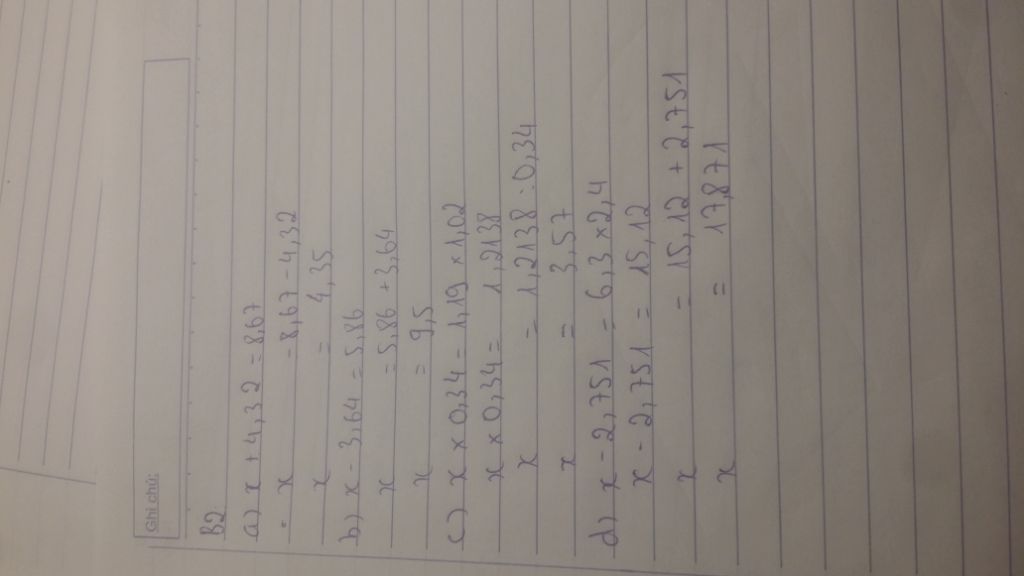 Ghi chú:
B2
a) x + 4,32 = 8,67
x = 8,67 - 4,32
x = 4,35
b) x - 3,64 = 5,86
x = 5,86 + 3,64
x = 9,5
c) x × 0,34 = 1,19 × 1,02
x × 0,34 = 1,2138
x = 1,2138 : 0,34
x = 3,57
d) x - 2,751 = 6,3 × 2,4
x - 2,751 = 15,12
x = 15,12 + 2,751
x = 17,871